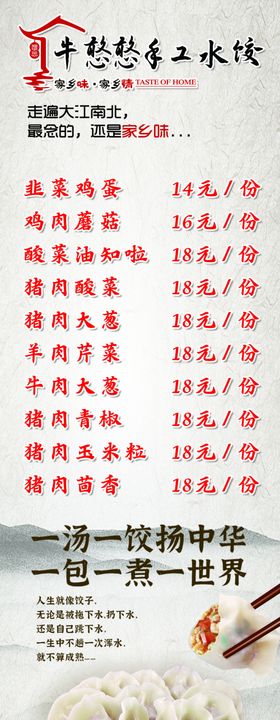 牛憨憨手工水饺
家乡味·家乡情 TASTE OF HOME
走遍大江南北,
最念的,还是家乡味...
韭菜鸡蛋 14元/份
鸡肉蘑菇 16元/份
酸菜油知啦 18元/份
猪肉酸菜 18元/份
猪肉大葱 18元/份
羊肉芹菜 18元/份
牛肉大葱 18元/份
猪肉青椒 18元/份
猪肉玉米粒 18元/份
猪肉茴香 18元/份
一汤一饺扬中华
一包一煮一世界
人生就像饺子,
无论是被拖下水,扔下水,
还是自己跳下水,
一生中不趟一次浑水,
就不算成熟---